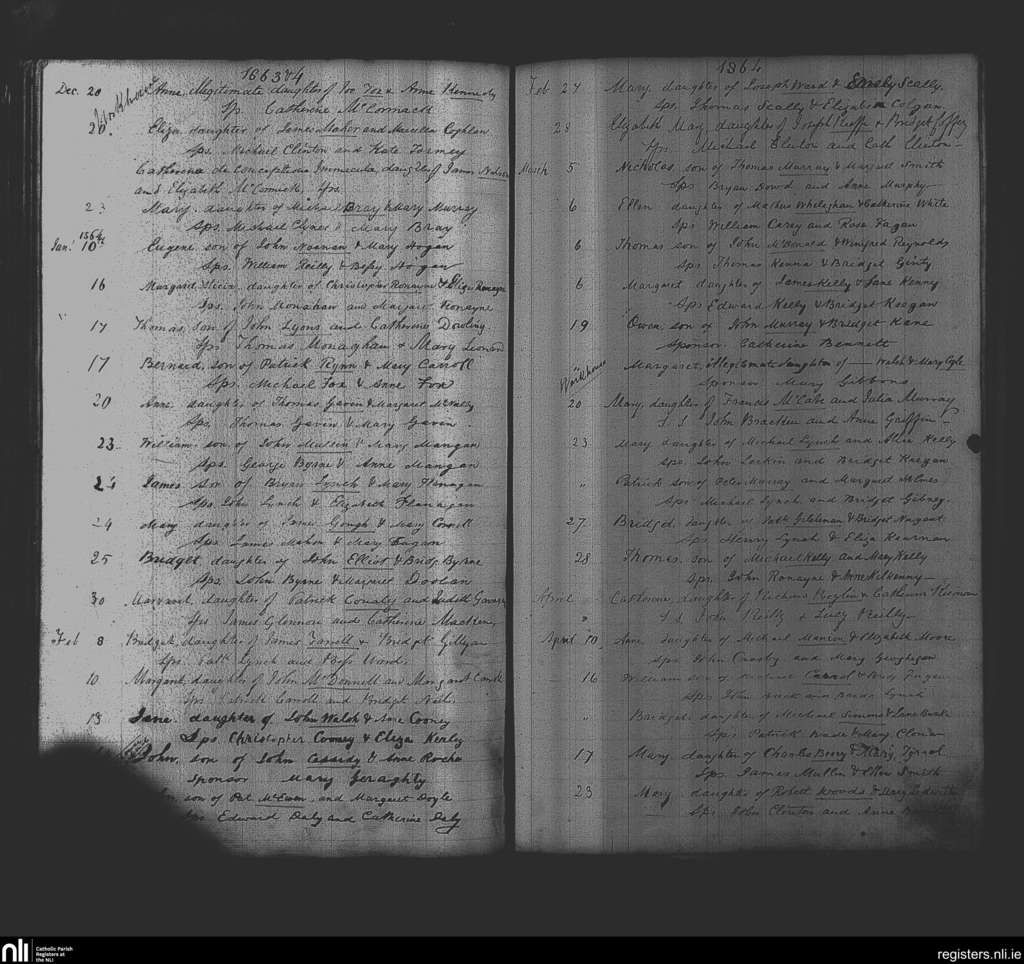 1863 & 4
Dec. 20 Workhouse Anne, illegitimate daughter of Jno Fox & Anne Kennedy
Sp. Catherine McCormack
20. Eliza daughter of James Maher and Marcella Coghlan
Sps. Michael Clinton and Kate Tormey
Catherina de Conceptione Immacula, daughter of James
and Elizabeth McCormick. Sps.
23 Mary. daughter of Michael Bray & Mary Murray
Sps. Michael Clynes & Mary Bray
1864
Jan. 10th Eugene son of John Noonan & Mary Hogan
Sps. William Reilly & Bessy Hogan
16 Margaret Alicia. daughter of Christopher Ronayne & Eliza Ronayne
Sps. John Monahan and Margaret Ronayne
17 Thomas, son of John Lyons and Catherine Dowling
Sps. Thomas Monaghan & Mary Leonard
17 Bernard, son of Patrick Flynn & Mary Carroll
Sps. Michael Fox & Anne Fox
20 Anne daughter of Thomas Gavin & Margaret McNally
Sps. Thomas Gavin & Mary Gavin.
23. William son of John Mullin & Mary Mangan
Sps. George Byrne & Anne Mangan
James son of Bryan Lynch & Mary Flanagan
Sps. John Lynch & Elizabeth Flanagan
24 Mary daughter of James Gough & Mary
Sps. James Mahon & Mary Eagan
25 Bridget daughter of John Elliot & Bridg. Byrne
Sps. John Byrne & Margaret Doolan
30 Margaret daughter of Patrick and Judith
Sps James Glennon and Catherine
Feb 8 Bridget, daughter of James Farrell & Bridget
Sps. Patk Lynch and Bess Ward.
10 Margaret daughter of John McDonnell and Margaret
Sps. Patrick Carroll and Bridget
13 Jane. daughter of John Walsh & Anne Cooney
Sps Christopher Cooney & Eliza Kerly
John, son of John Cassidy & Anne Roche
Sponsor Mary Geraghty
son of Pat. McEwen and Margaret Doyle
Sps Edward Daly and Catherine Daly
1864
Feb 27 Mary, daughter of Joseph Ward & Scally.
Sps. Thomas Scally & Elizabeth Colgan.
28 Elizabeth May daughter of Joseph & Bridget
Sps. Michael Clinton and Cath Clinton
March 5 Nicholas, son of Thomas Murray & Margaret Smith
Sps. Bryan Dowd and Anne Murphy
6 Ellen daughter of Mathew Wheleghan & Catherine White
Sps William Carey and Rose Fagan
6 Thomas son of John McDonald & Winifred Reynolds
Sps Thomas Kenna & Bridget Ginty
6 Margaret daughter of James Kelly & Jane Kenny
Sps Edward Kelly & Bridget Keegan
19 Owen son of John Murray & Bridget Kane
Sponsor. Catherine Bennett
Workhouse Margaret, illegitimate daughter of — Walsh & Mary
Sponsor Mary Gibbons
20 Mary, daughter of Francis McCabe and Julia Murray
S.S. John Bracken and Anne Gaffin
23 Mary daughter of Michael Lynch and Alice Kelly
Sps. John Larkin and Bridget Keegan
" Patrick son of Peter Murray and Margaret
Sps Michael Lynch and Bridget Gibney.
27. Bridget. daughter of Patk & Bridget Nugent
Sps Henry Lynch & Eliza Kearnan
28 Thomas. son of Michael Kelly and Mary Kelly
Sps. John Ronayne & Anne Kilkenny
April Catherine, daughter of Richard & Catherine
S.S. John Reilly & Lucy Reilly
April 10 Anne daughter of Michael Manion & Elizabeth Moore
Sps John and Mary Geoghegan
16 William son of Michael
Sps John and Lynch
" Bridget daughter of Michael & Jane
Sps Patrick Wade & Mary
17 Mary daughter of Charles Berry & Mary Tyrrel
Sps. James Mullin & Ellen Smith
23 Mary daughter of Robert Woods & Mary
Sps. John Clinton and Anne
nli
Catholic Parish
Registers at
the NLI
registers.nli.ie